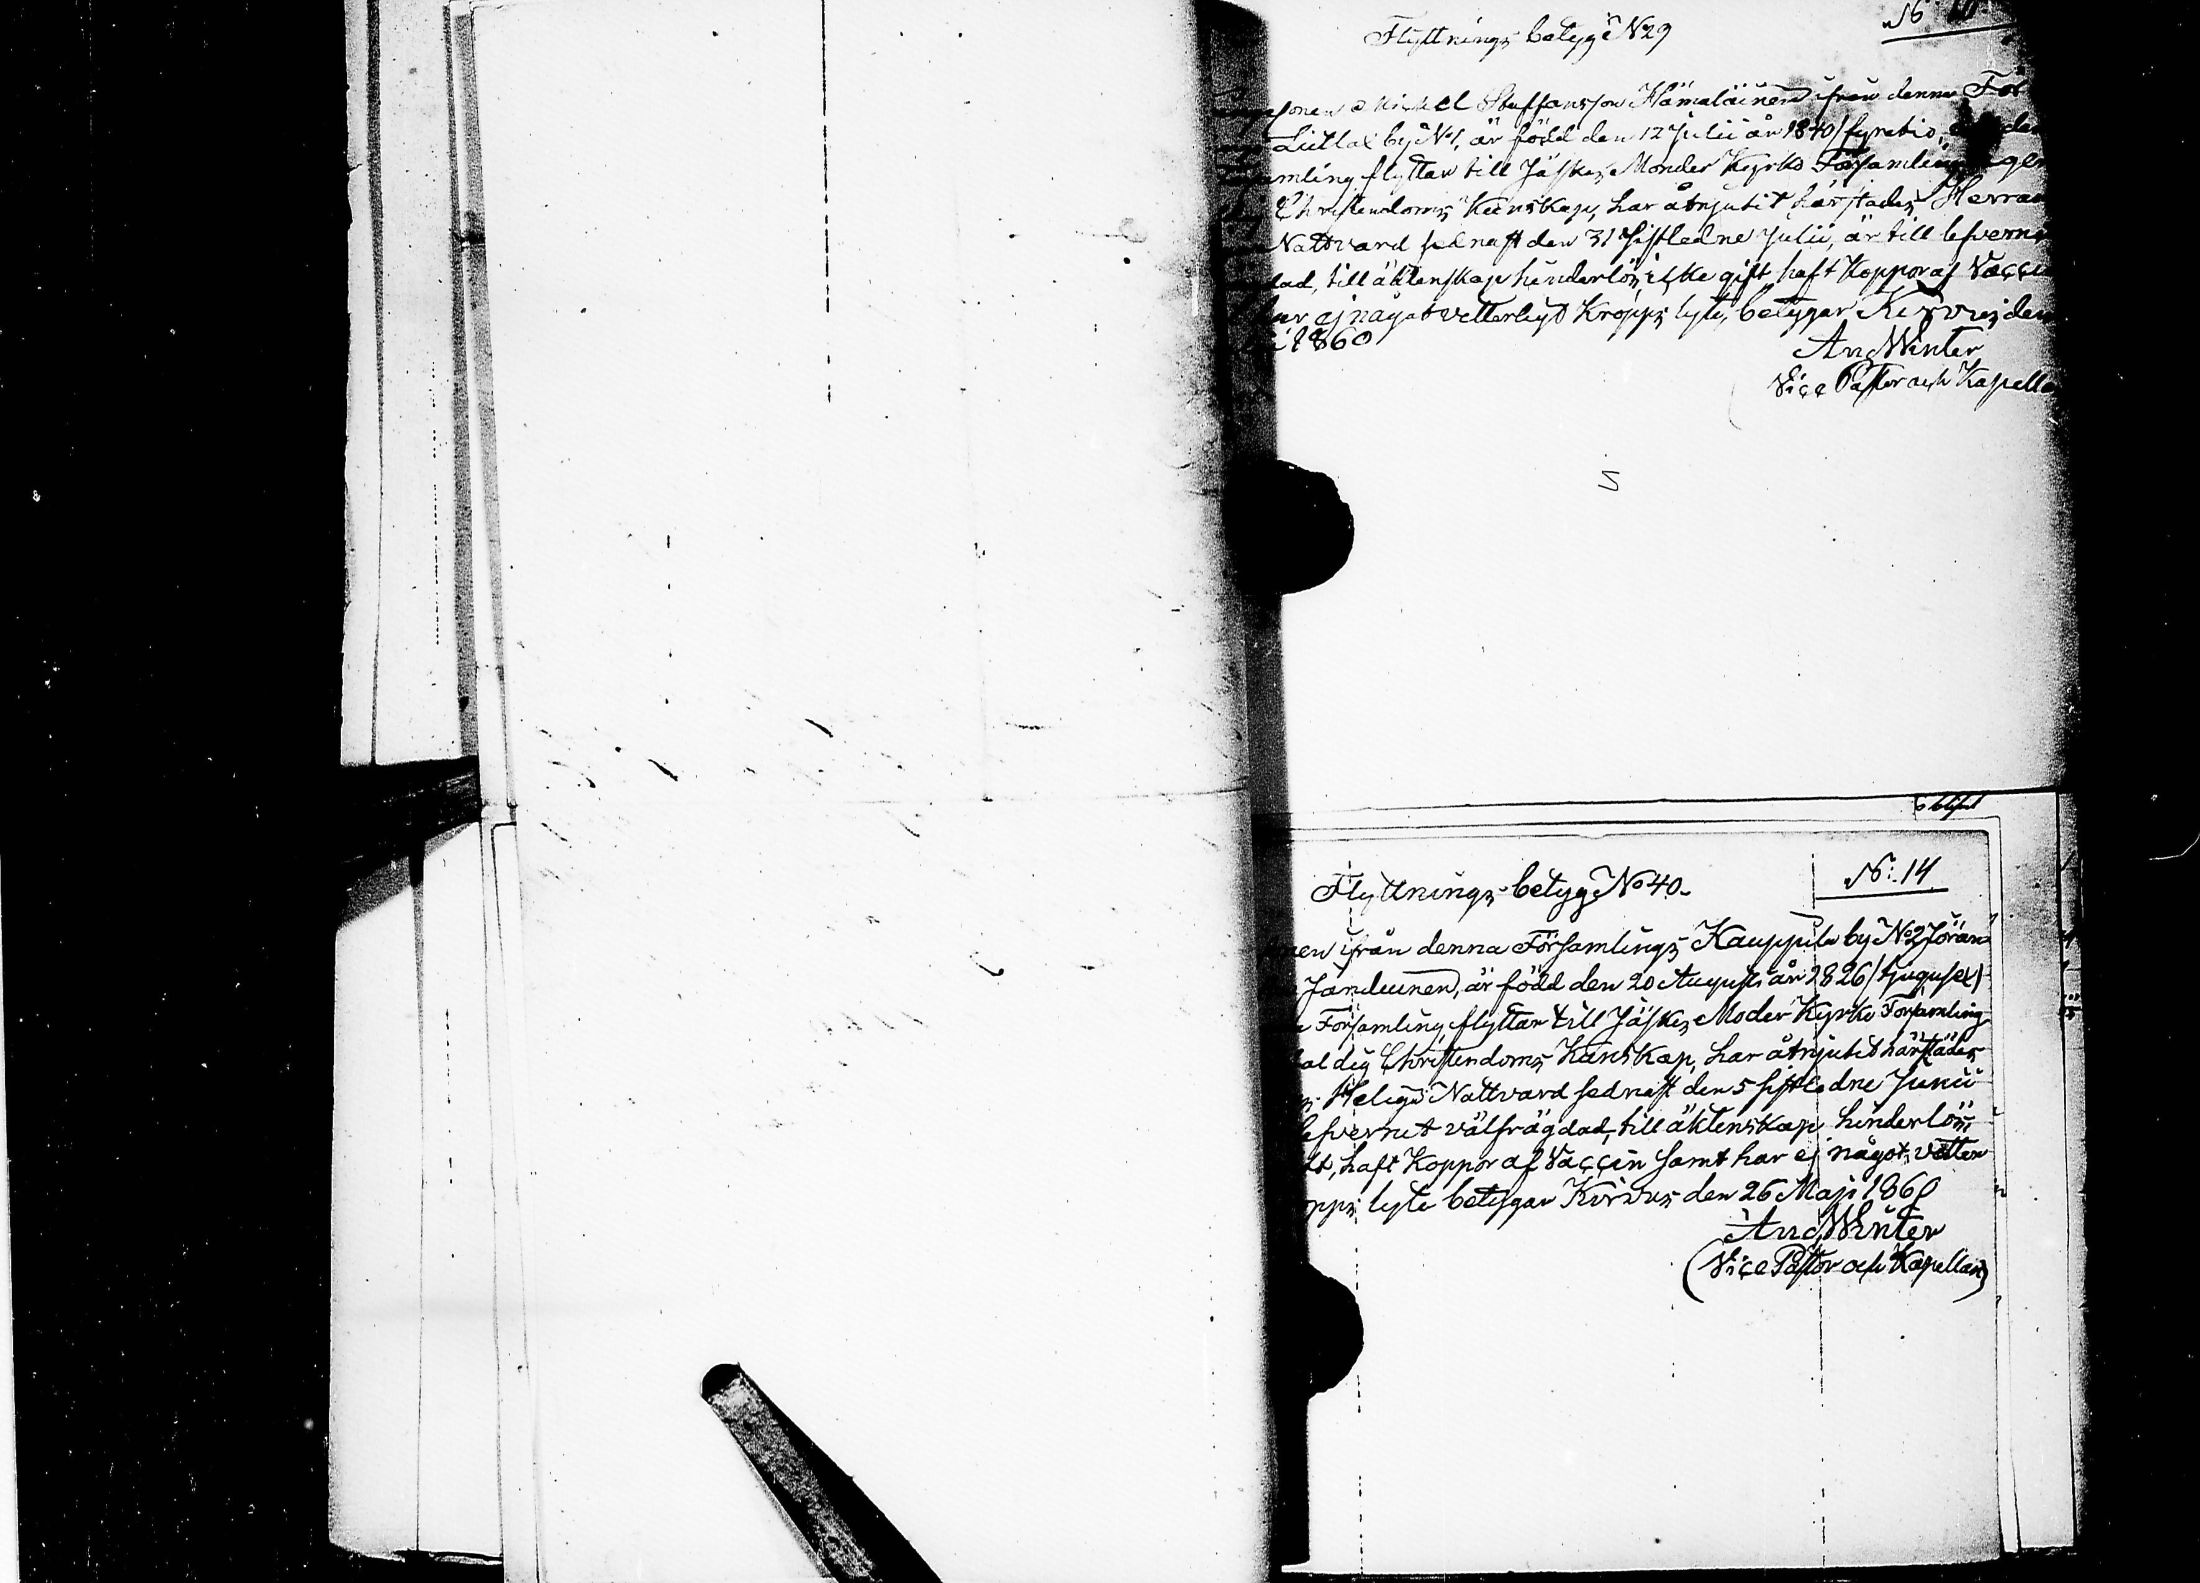 Flyttnings betyg N29
Mickel Staffansson Hämäläinen ifrån denna För
by N1, är född den 12 Julii år 1840/fyratio
amling flyttar till Jäskes Moder Kyrko Församling
Christendoms Kunskap, har åtnjutit härstädes Herrans
Nattvard sednast den 31 sistledne Julii, är till lefverne
dad, till äktenskap hinderlös, icke gift, haft Koppor af Vaccin
har ej något vetterligt Kropps lyte, betygar Kirvus den
1860
And Winter
Vice Pastor och Kapella
6 blyful
Flyttnings betyg No 40.
No. 14
nen ifrån denna Församlings Kauppila by No2 Jöran
är född den 20 Augusti år 1826/tjugusex/
a Församling flyttar till Jäskes Moder Kyrko Församling
dig Christendoms Kunskap, har åtnjutit härstädes
s Heliga Nattvard sednast den 5 sistledne Junii
lefvernet välfrägdad, till äktenskap hinderlös,
ft, haft Koppor af Vaccin samt har ej något vetter
opps lyte betygar Kirvus den 26 Maji 1860
And Winter
(Vice Pastor och Kapellan)